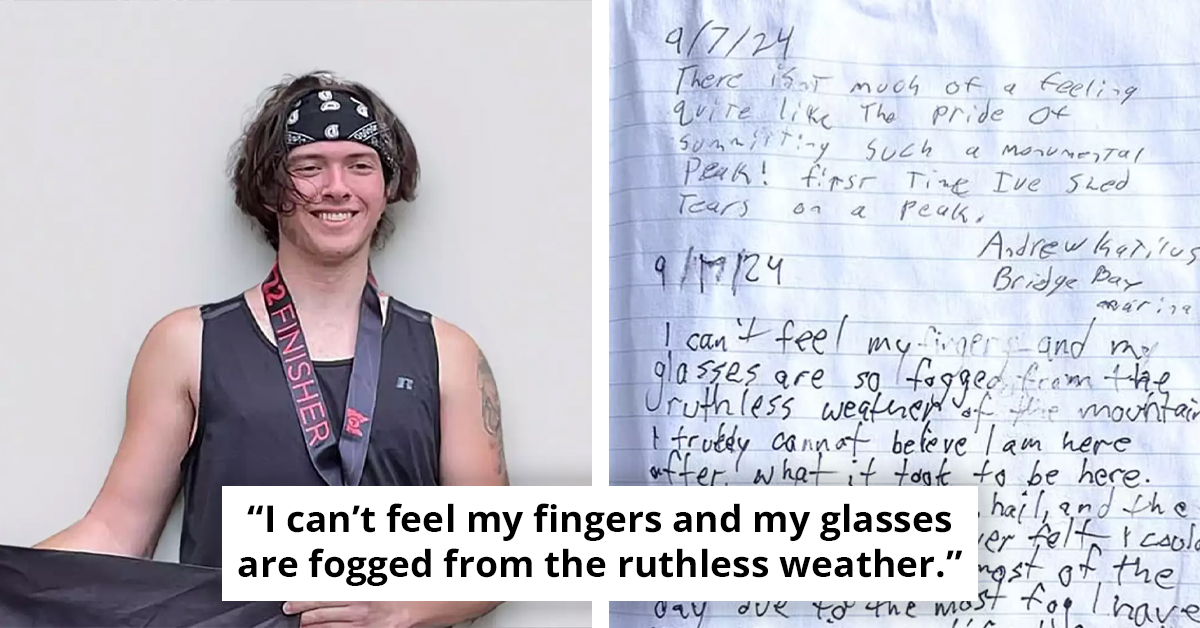 22 FINISHER
R
9/7/24
There isnt much of a feeling
quite like The pride of
summitting such a monumental
Peak! first Time Ive shed
Tears on a peak.
Andrew
Bridge Bay
marina
9/17/24
I can't feel my fingers and my
glasses are so fogged from the
ruthless weather of the mountain
I cannot believe I am here
after what it took to be here.
hail, and the
felt I could
most of the
day due to the most fog I have
“I can’t feel my fingers and my glasses
are fogged from the ruthless weather.”